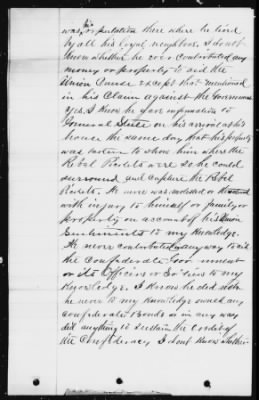 was his reputation there where he lived
by all his loyal neighbors, I do not
know whether he ever contributed any
money or property to aid the
Union Cause except that mentioned
in his Claim against the Government
yes. I know he gave information to
General Steele on his arrival at his
house the same day that his property
was taken to show him where the
Rebel Pickets were so he could
surround and capture the Rebel
Pickets, He never was molested or threatened
with injury to himself or family or
property on account of his Union
Sentiments to my knowledge.
He never contributed in any way to aid
the Confederate Government
or its Officers or Soldiers to my
Knowledge, I know he did not
he never to my knowledge owned any
confederate Bonds or in any way
did anything to sustain the Credit of
the Confederacy, I dont know whether